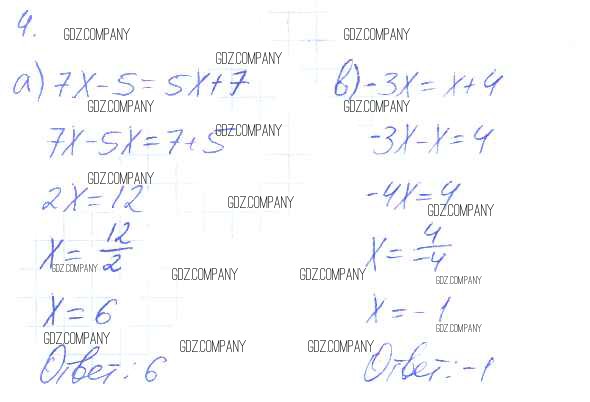 4.
GDZ.COMPANY GDZ.COMPANY
GDZ.COMPANY
а) 7x-5=5x+7
GDZ.COMPANY
7x-5x=7+5
GDZ.COMPANY
GDZ.COMPANY
2x=12
GDZ.COMPANY
x=12/2
GDZ.COMPANY
GDZ.COMPANY
x=6
GDZ.COMPANY
GDZ.COMPANY
Ответ: 6
в) -3x=x+4
GDZ.COMPANY
-3x-x=4
-4x=4
GDZ.COMPANY
x=4/-4
GDZ.COMPANY
GDZ.COMPANY
x=-1
GDZ.COMPANY
GDZ.COMPANY
Ответ: -1